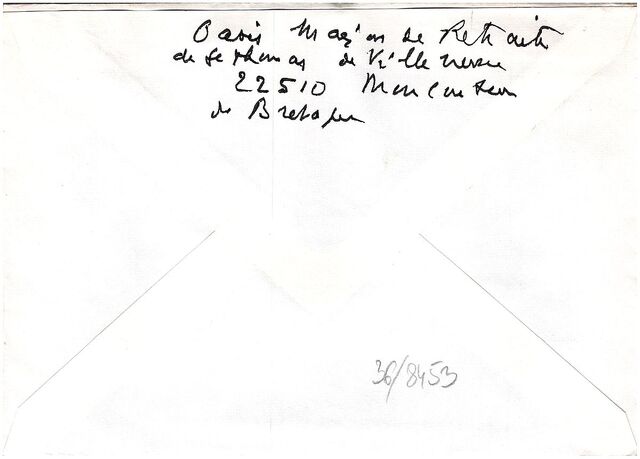 Maison de Retraite
de St Thomas de Villeneuve
22510 Moncontour
de Bretagne
36/8453